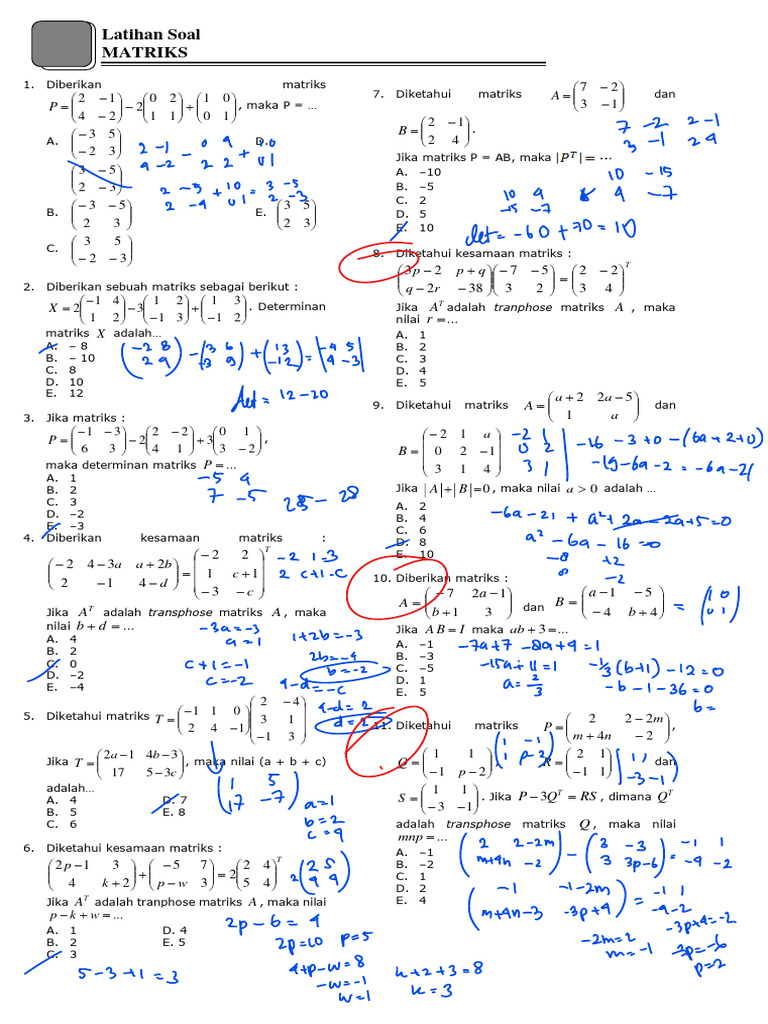 Latihan Soal
MATRIKS
1. Diberikan matriks
P = (2 −1; 4 −2) − 2(0 2; 1 1) + (1 0; 0 1), maka P = ...
A. (−3 5; −2 3) D.
(3 −5; 2 −3)
B. (−3 −5; 2 3) E. (3 5; 2 3)
C. (3 5; −2 −3)
2 -1 - 0 4 + 1 0
4 -2 2 2 0 1
2 -5 + 1 0 = 3 -5
2 -4 0 1 2 -3
2. Diberikan sebuah matriks sebagai berikut :
X = 2(−1 4; 1 2) − 3(1 2; −1 3) + (1 3; −1 2). Determinan
matriks X adalah...
A. − 8
B. − 10
C. 8
D. 10
E. 12
(-2 8; 2 4) - (3 6; -3 9) + (1 3; -1 2) = |-4 5; 4 -3|
det = 12-20
3. Jika matriks :
P = (−1 −3; 6 3) − 2(2 −2; 4 1) + 3(0 1; 3 −2),
maka determinan matriks P = ...
A. 1
B. 2
C. 3
D. −2
E. −3
-5 4
7 -5
25 - 28
4. Diberikan kesamaan matriks :
(−2 4−3a a+2b; 2 −1 4−d) = (−2 2; 1 c+1; −3 −c)^T
-2 1 -3
2 c+1 -c
Jika A^T adalah transphose matriks A , maka
nilai b + d = ...
A. 4
B. 2
C. 0
D. −2
E. −4
-3a = -3
a = 1
c+1 = -1
c = -2
1+2b = -3
2b = -4
b = -2
4-d = -c
4-d = 2
d = 2
5. Diketahui matriks T = (−1 1 0; 2 4 −1)(2 −4; 3 1; −1 3)
Jika T = (2a−1 4b−3; 17 5−3c), maka nilai (a + b + c)
adalah...
A. 4 D. 7
B. 5 E. 8
C. 6
(1 5; 17 -7)
a = 1
b = 2
c = 4
6. Diketahui kesamaan matriks :
(2p−1 3; 4 k+2) + (−5 7; p−w 3) = 2(2 4; 5 4)^T
2(2 5; 4 4)
Jika A^T adalah tranphose matriks A , maka nilai
p − k + w = ...
A. 1 D. 4
B. 2 E. 5
C. 3
5-3+1 = 3
2p-6 = 4
2p = 10 p = 5
4+p-w = 8
-w = -1
w = 1
k+2+3 = 8
k = 3
7. Diketahui matriks A = (7 −2; 3 −1) dan
B = (2 −1; 2 4).
7 -2 2 -1
3 -1 2 4
Jika matriks P = AB, maka |P^T| = ...
A. −10
B. −5
C. 2
D. 5
E. 10
10 -15
4 -7
10 4
-15 -7
det = -60 + 70 = 10
8. Diketahui kesamaan matriks :
(3p−2 p+q; q−2r −38)(−7 −5; 3 2) = (2 −2; 3 −4)^T
Jika A^T adalah tranphose matriks A , maka
nilai r = ...
A. 1
B. 2
C. 3
D. 4
E. 5
9. Diketahui matriks A = (a+2 2a−5; 1 a) dan
B = (−2 1 a; 0 2 −1; 3 1 4)
-2 1
0 2
3 1
-16 -3 +0 -(6a+2+0)
-19-6a-2 = -6a-21
Jika |A|+|B|=0, maka nilai a > 0 adalah ...
A. 2
B. 4
C. 6
D. 8
E. 10
-6a-21 + a²+2a-2a+5=0
a² -6a -16 =0
-8 +2
8 -2
10. Diberikan matriks :
A = (−7 2a−1; b+1 3) dan B = (a−1 −5; −4 b+4)
= (1 0; 0 1)
Jika AB = I maka ab + 3 = ...
A. −1
B. −3
C. −5
D. 1
E. 5
-7a+7 -8a+4 = 1
-15a+11 = 1
a = 2/3
-1/3(b+1) -12 = 0
-b-1-36 = 0
b =
11. Diketahui matriks P = (2 2−2m; m+4n −2),
Q = (1 1; −1 p−2), R = (2 1; −1 1) dan
(1 -1; 1 p-2)
(1 1; -3 -1)
S = (1 1; −3 −1). Jika P − 3Q^T = RS , dimana Q^T
adalah transphose matriks Q , maka nilai
mnp = ...
A. −1
B. −2
C. 1
D. 2
E. 4
(2 2-2m; m+4n -2) - (3 -3; 3 3p-6) = -1 1; -4 -2
(-1 -1-2m; m+4n-3 -3p+4) = -1 1; -4 -2
-2m = 2
m = -1
-3p+4 = -2
-3p = -6
p = 2